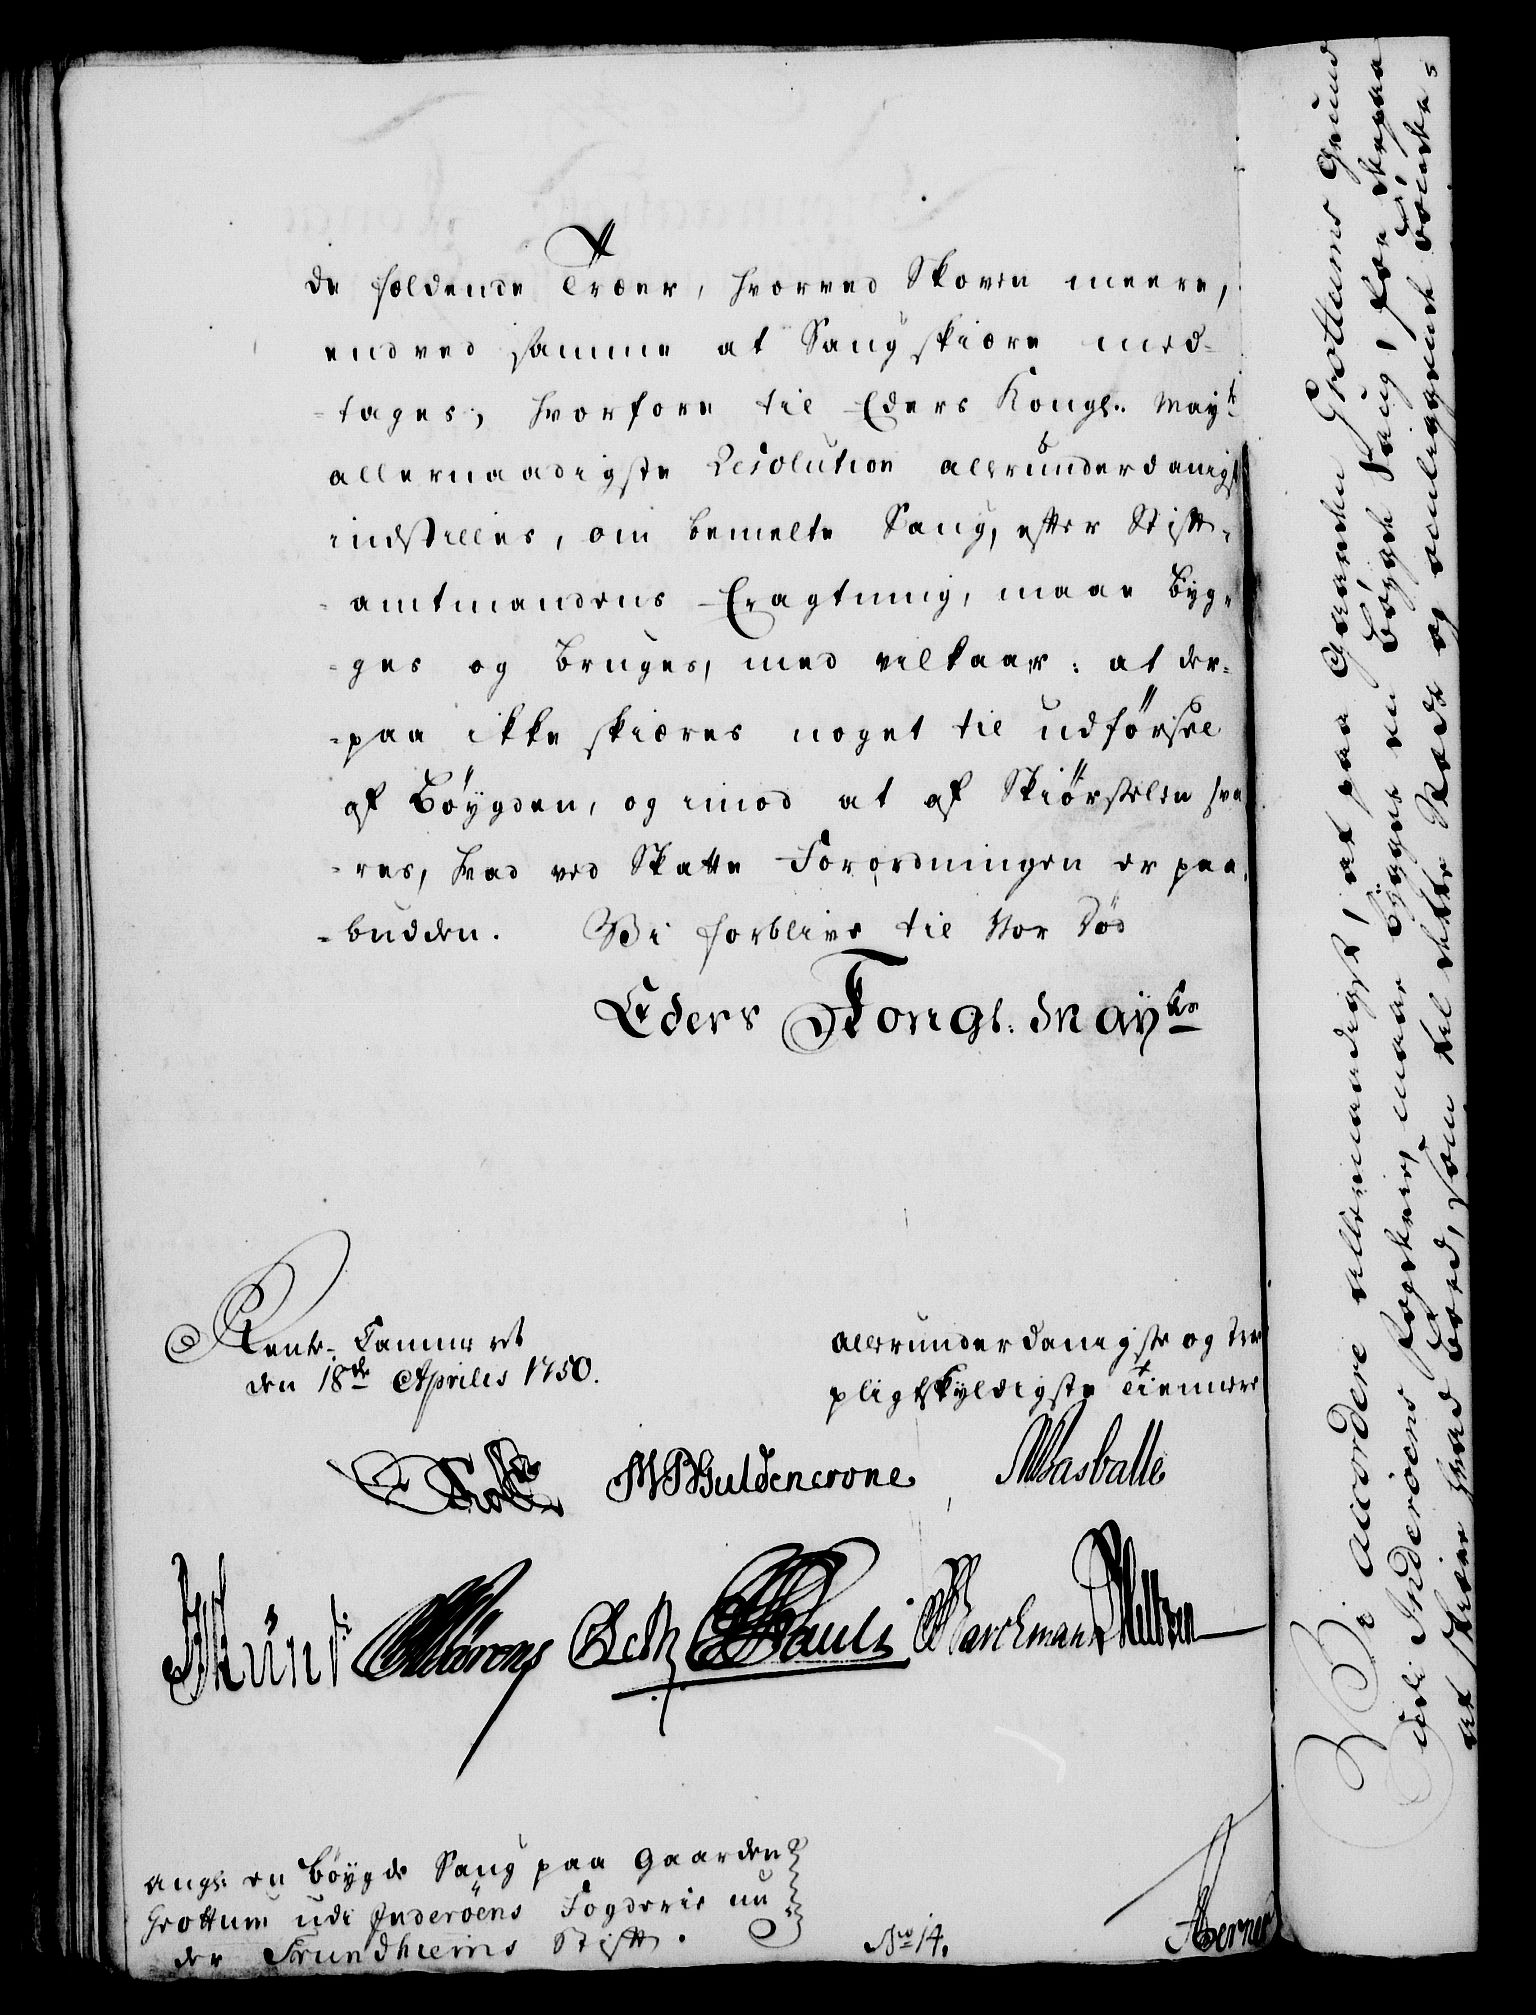 de fældende Træer, hvorved Skoven meere,
end ved samme at Saug skiære med-
-tages; hvorfore til Eders Kongl. Mayts
allernaadigste Resolution allerunderdanigst
indstilles, om bemelte Saug, efter Stift-
-amtmandens Eragtning, maae byg-
-ges og bruges, med vilkaar: at der-
-paa ikke skiæres noget til udførsel
af Bøygden, og imod at af Skiørselen sva-
-res, hvad ved Skatte Forordningen er paa-
-budden. Vi forblive til Vor Død
Eders Kongl. Mayts
Rente-Cammeret
den 18de Aprilis 1750.
allerunderdanigste og troe
pligtskyldigste Tiennere
MPGuldencrone
Wasballe
Pauli
Barchmann
Angl. en bøygde Saug paa Gaarden
Grottum udi Inderøens Fogderie un-
der Trundhiems Stift.
No 14.
Vi accordere allernaadigst, at paa Gaarden Grottums Grund
udi Inderøens Fogderie, maae bygges en bøygde Saug, for derpaa
at skiær hvad Bord, som til dette Stæds og omliggende Bøigders